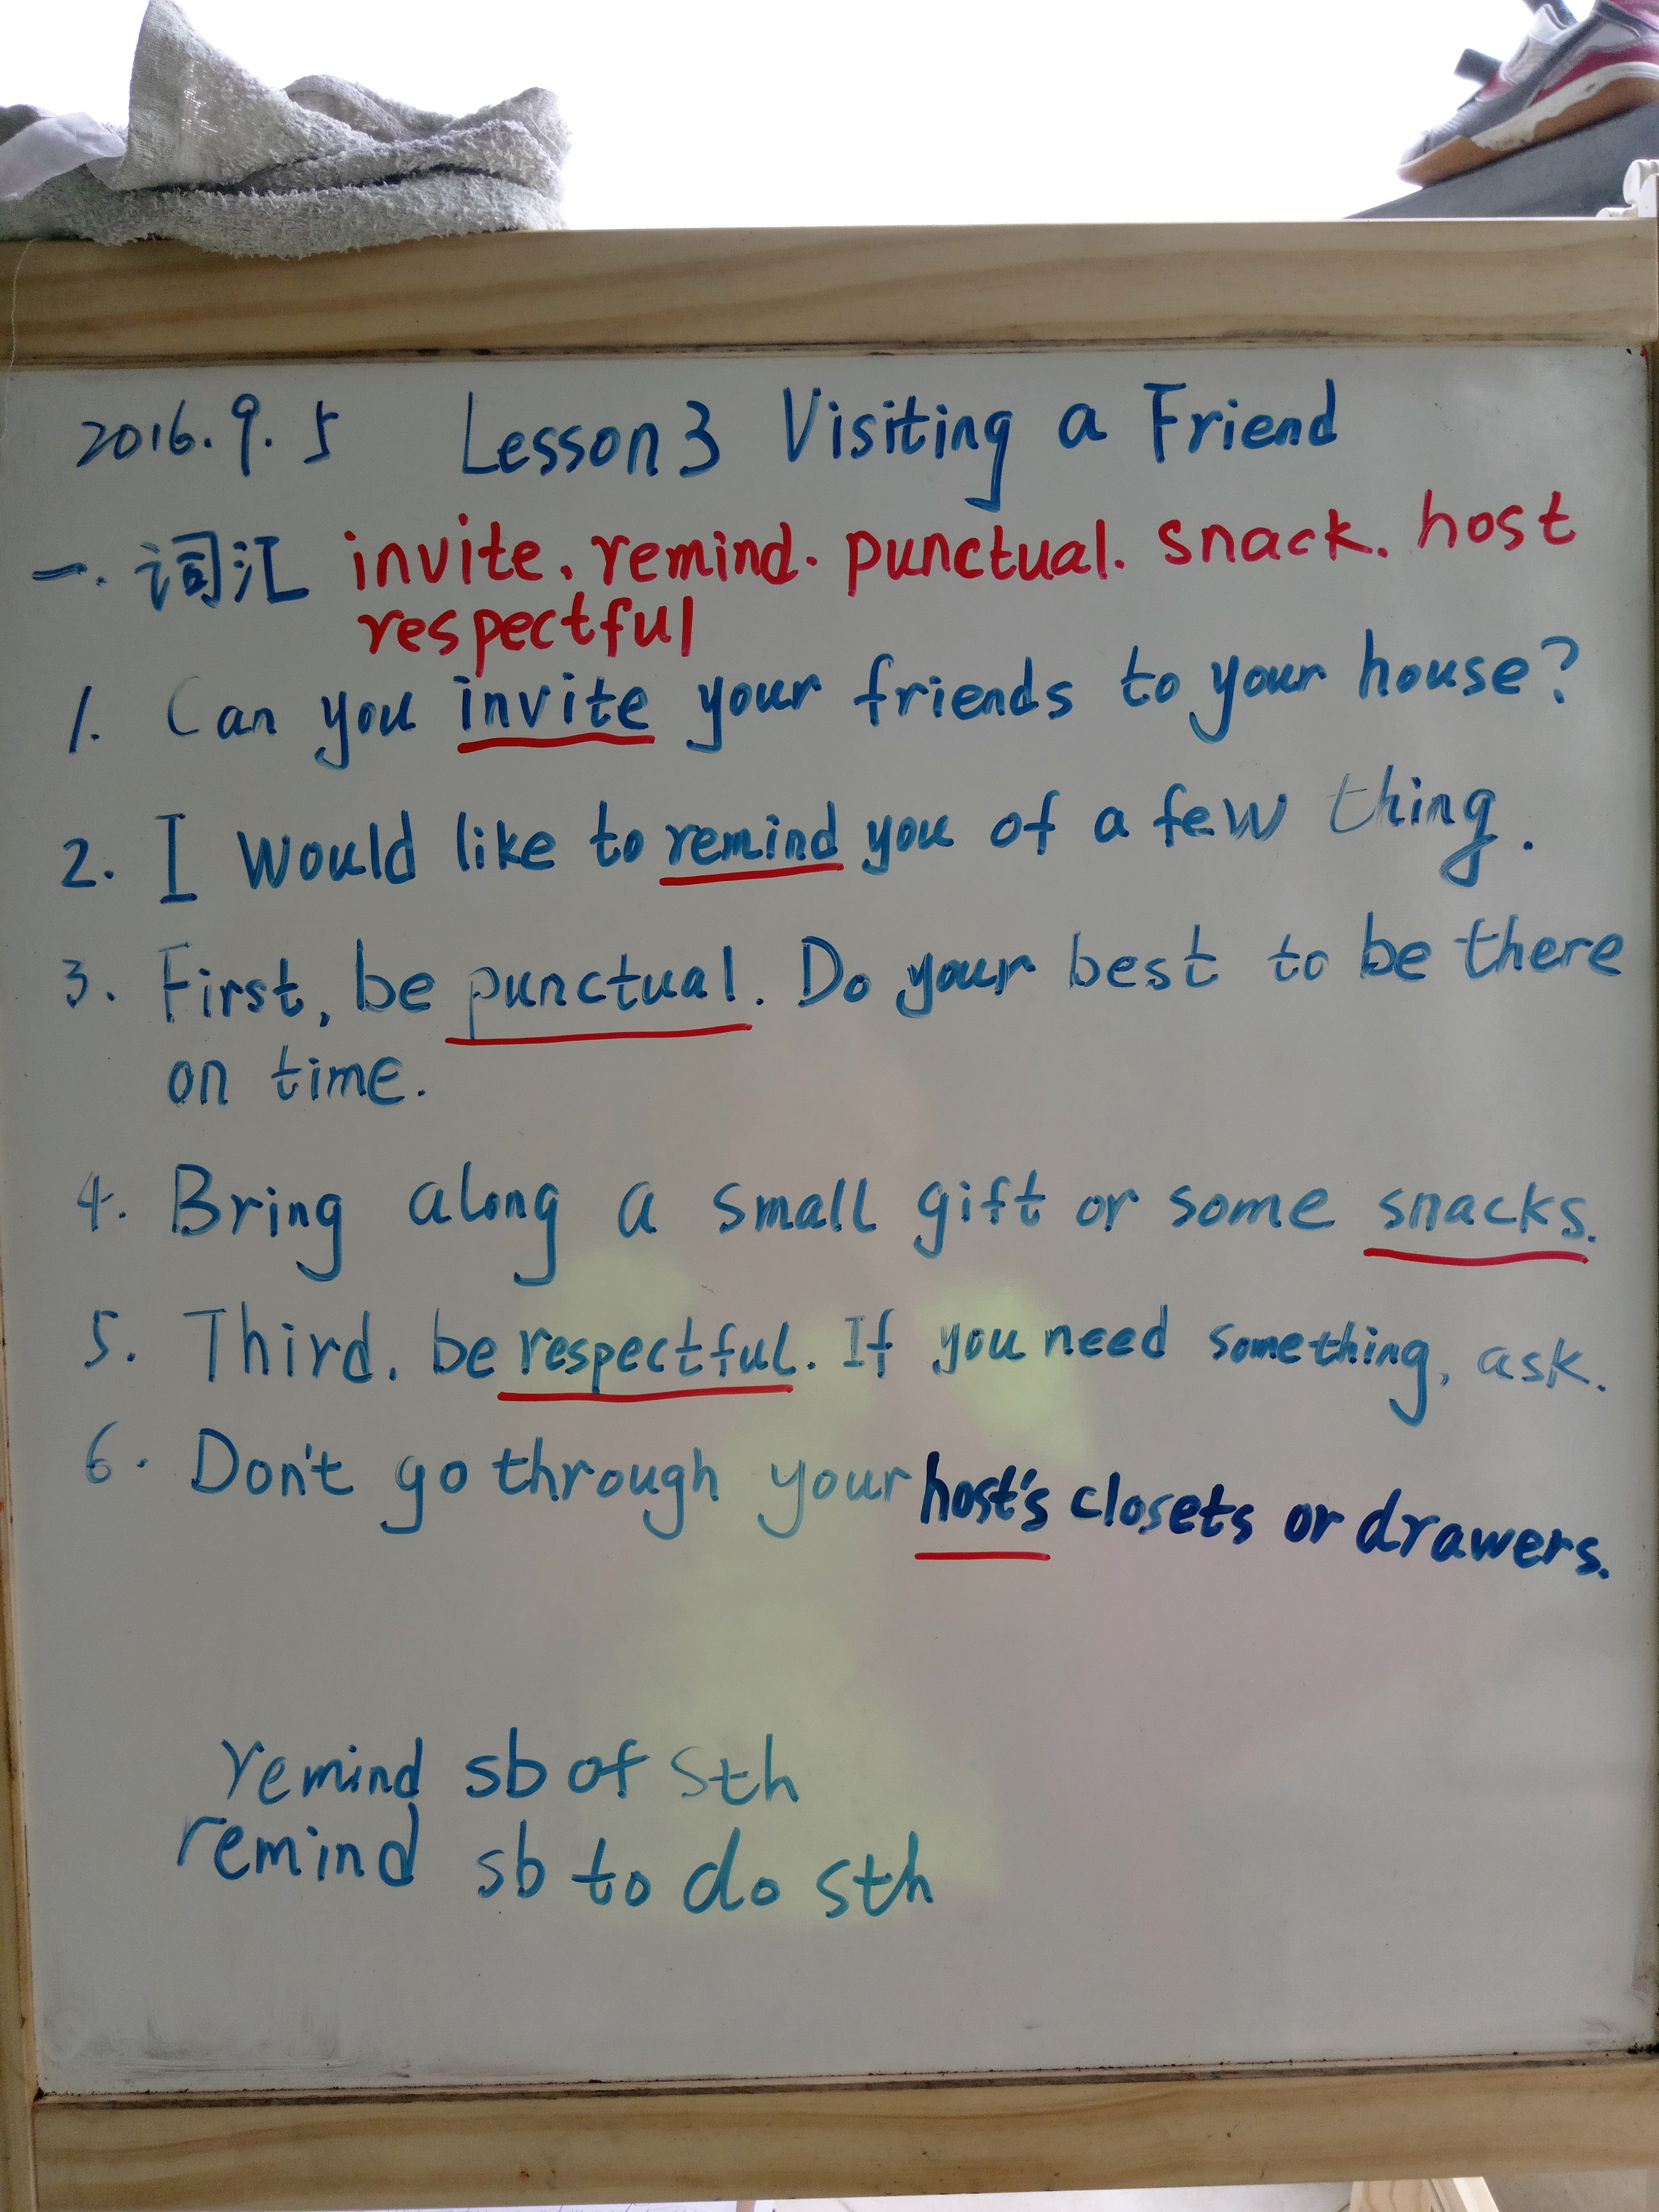 2016.9.5 Lesson 3 Visiting a Friend
一. 词汇 invite. remind. punctual. snack. host
respectful
1. Can you invite your friends to your house?
2. I would like to remind you of a few thing.
3. First, be punctual. Do your best to be there
on time.
4. Bring along a small gift or some snacks.
5. Third. be respectful. If you need something, ask.
6. Don't go through your host's closets or drawers.
remind sb of sth
remind sb to do sth